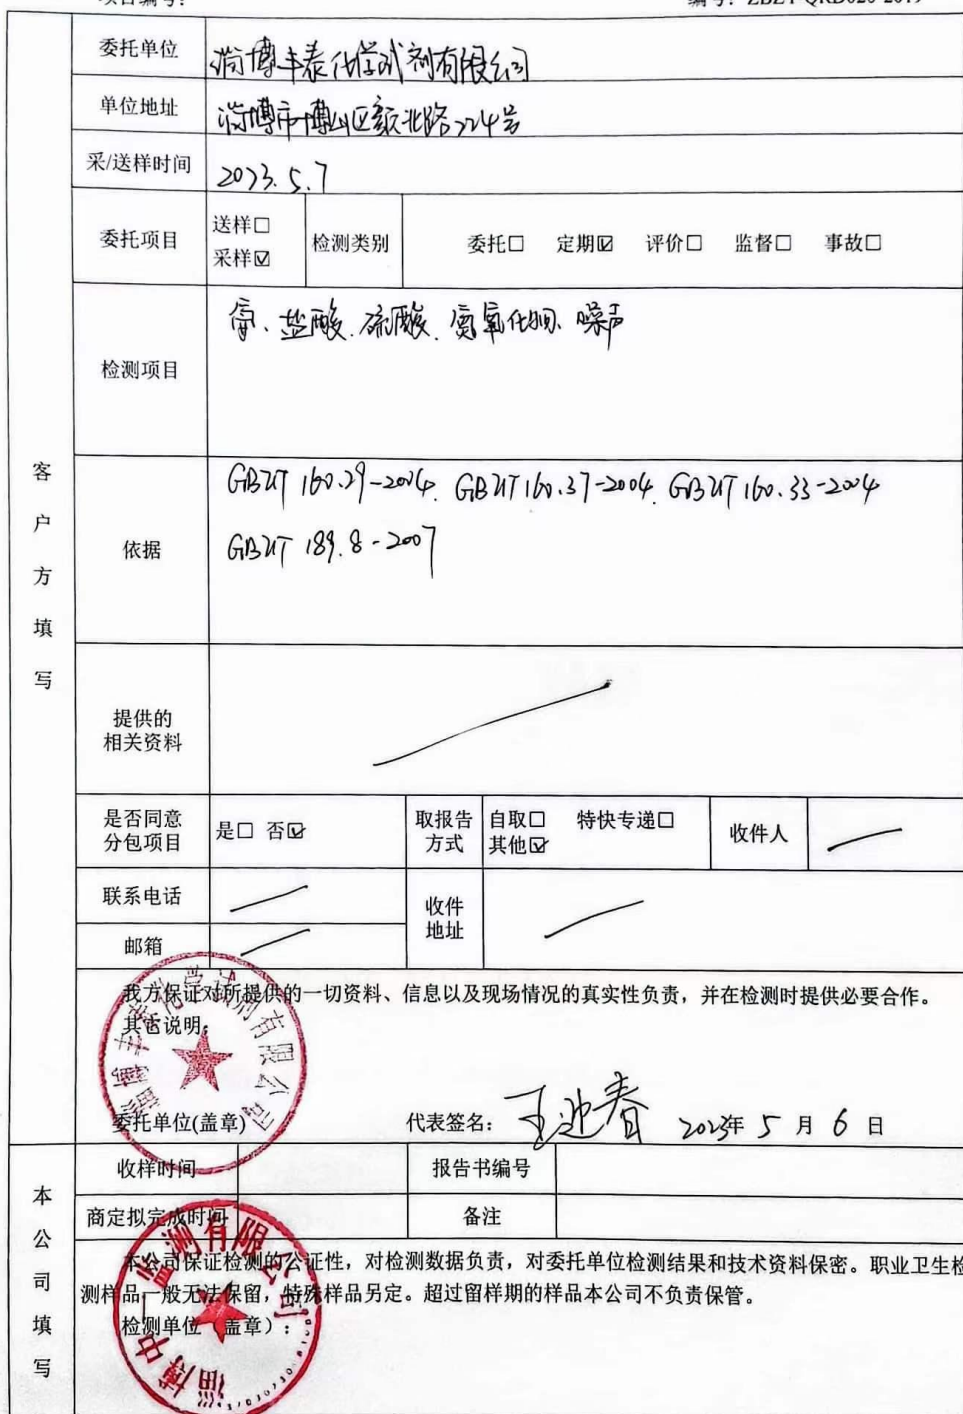 项目编号:
编号：ZBZY-QRD026-2019
委托单位 淄博丰泰化学试剂有限公司
单位地址 淄博市博山区颜北路224号
采/送样时间 2023.5.7
委托项目 送样☐ 采样☑ 检测类别 委托☐ 定期☑ 评价☐ 监督☐ 事故☐
检测项目 氨、盐酸、硫酸、氮氧化物、噪声
客户方填写
依据 GBZ/T 160.29-2004、GBZ/T 160.37-2004、GBZ/T 160.33-2004
GBZ/T 189.8-2007
提供的相关资料
是否同意分包项目 是☐ 否☑ 取报告方式 自取☐ 特快专递☐ 其他☑ 收件人
联系电话 收件地址
邮箱
我方保证对所提供的一切资料、信息以及现场情况的真实性负责，并在检测时提供必要合作。
其它说明:
淄博丰泰化学试剂有限公司
委托单位(盖章) 代表签名: 王迎春 2023年 5 月 6 日
本公司填写
收样时间 报告书编号
商定拟完成时间 备注
本公司保证检测的公证性，对检测数据负责，对委托单位检测结果和技术资料保密。职业卫生检
测样品一般无法保留，特殊样品另定。超过留样期的样品本公司不负责保管。
检测单位（盖章）:
淄博中一监测有限公司